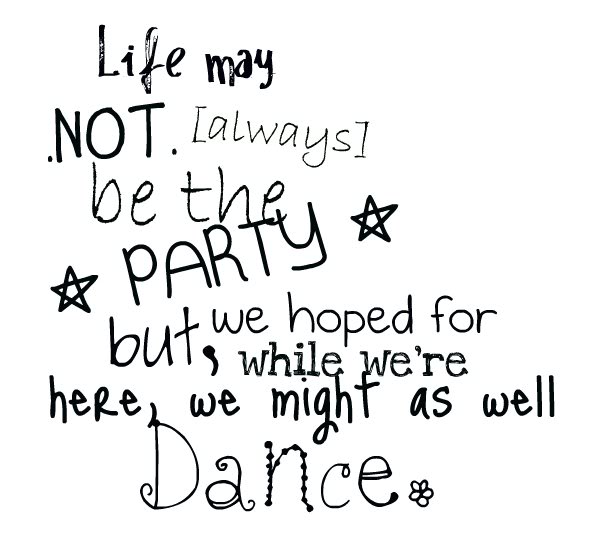 Life may
.NOT. [always]
be the
PARTY
we hoped for
but, while we're
here, we might as well
Dance.